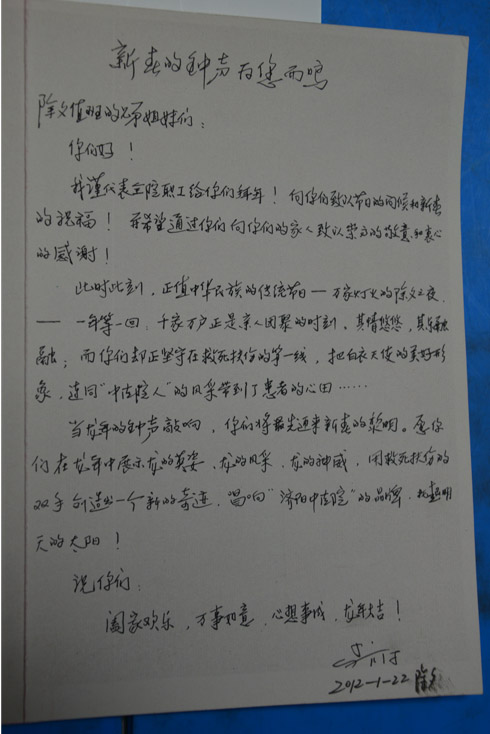 新春的钟声为您而鸣
除夕值班的兄弟姐妹们:
你们好!
我谨代表全院职工给你们拜年!向你们致以节日的问候和新春
的祝福!并希望通过你们向你们的家人致以崇高的敬意和衷心
的感谢!
此时此刻,正值中华民族的传统节日—万家灯火的除夕之夜,
——一年等一回,千家万户正是亲人团聚的时刻,其情悠悠,其乐融
融;而你们却正坚守在救死扶伤的第一线,把白衣天使的美好形
象,连同“中医院人”的风采带到了患者的心田……
当龙年的钟声敲响,你们将最先迎来新春的黎明。愿你
们在龙年中展示龙的英姿、龙的风采、龙的神威,用救死扶伤的
双手创造出一个新的奇迹,唱响“济阳中医院”的品牌,托起明
天的太阳!
祝你们:
阖家欢乐,万事如意,心想事成,龙年大吉!
2012-1-22 除夕